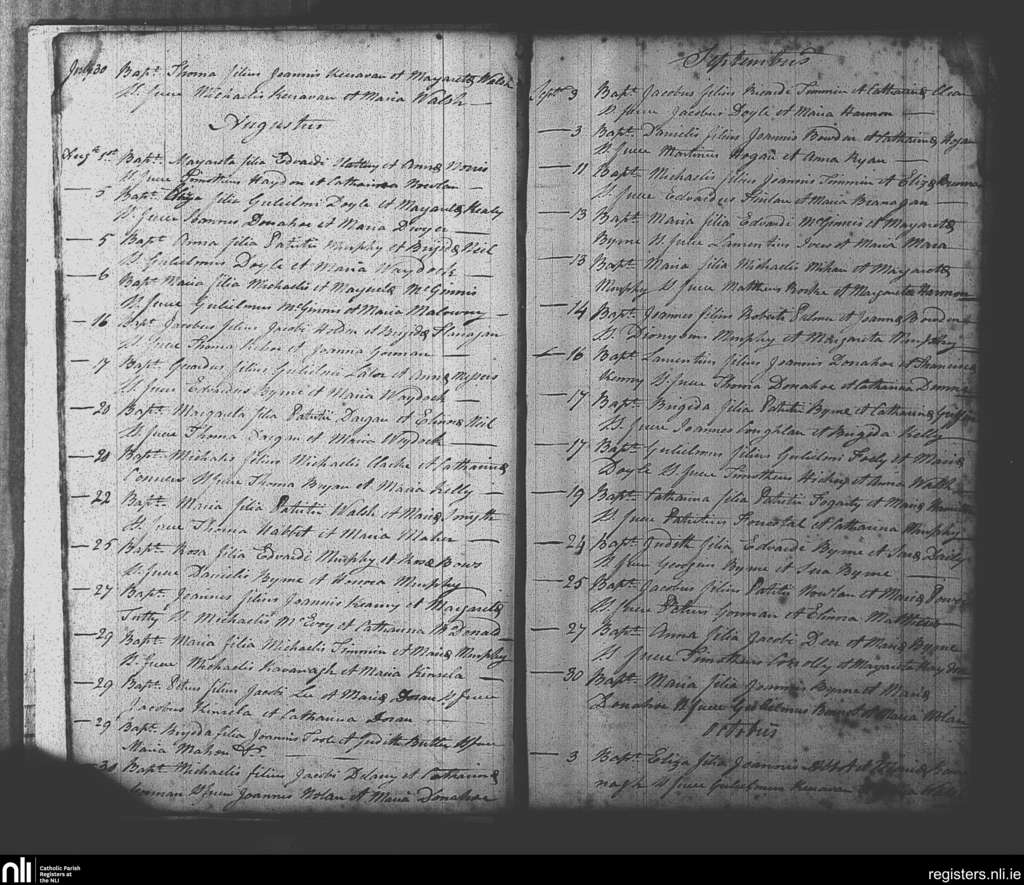 July 30 Bapt. Thoma filius Joannis Kenavan et Margareta Walsh
Sp. fuere Michaelis Kenavan et Maria Walsh
Augustus
Augt. 1st. Bapt. Margareta filia Edvardi et Anna Norris
Sp. fuere Timotheus Haydon et Catharina Nowlan
5 Bapt. Eliza filia Gulielmi Doyle et Margareta Healy
Sp. fuere Joannes Donahoe et Maria Dwyer
5 Bapt. Anna filia Patritii Murphy et Brigida Neil
Sp. Gulielmus Doyle et Maria Waydock
6 Bapt. Maria filia Michaelis et Margareta McGinnis
Sp. fuere Gulielmus McGinnis et Maria Malowny
16 Bapt. Jacobus filius Jacobi Holden et Brigida Flanagan
Sp. fuere Thoma et Joanna Gorman
17 Bapt. filius Gulielmi Lalor et Anna
Sp. fuere Edvardus Byrne et Maria Waydock
20 Bapt. Margareta filia Patritii Dargan et Elenora Neil
Sp. fuere Thoma Dargan et Maria Wydock
20 Bapt. Michalis filius Michaelis Clarke et Catharina
Connors Sp. fuere Thoma Bryan et Maria Kelly
22 Bapt. Maria filia Patritii Walsh et Maria Smyth
Sp. fuere Thoma Nabbot et Maria Maher
25 Bapt. Rosa filia Edvardi Murphy et Anna Bows
Sp. fuere Danielis Byrne et Honora Murphy
27 Bapt. Joannes filius Joannis Kearny et Margareta
Sp. Michaelis McEvoy et Catharina McDonald
29 Bapt. Maria filia Michaelis Timmin et Maria Murphy
Sp. fuere Michaelis Kavanagh et Maria Kinsela
29 Bapt. Petrus filius Jacobi Lee et Maria Doran Sp. fuere
Jacobus Kinsela et Catharina Doran
29 Bapt. Brigida filia Joannis Toole et Judith Butler Sp. fuere
Maria Mahon &c
30 Bapt. Michaelis filius Jacobi Delany et Catharina
Gorman Sp. fuere Joannis Nolan et Maria Donahoe
Septembris
Septr. 3 Bapt. Jacobus filius Ricardi Timmin et Catharina
Sp. fuere Jacobus Doyle et Maria Harmon
3 Bapt. Danielis filius Joannis Bowdin et Catharina Hogan
Sp. fuere Martinus Hogan et Anna Ryan
11 Bapt. Michaelis filius Joannis Timmin et Eliza
Sp. fuere Edvardus et Maria Branagan
13 Bapt. Maria filia Edvardi McGinnis et Margareta
Byrne Sp. fuere Laurentius et Maria Mara
13 Bapt. Maria filia Michaelis Mihan et Margareta
Murphy Sp. fuere Mattheus Rorke et Margareta Harmon
14 Bapt. Joannes filius Roberti Palmer et Joanna Bowden
Sp. Dionysius Murphy et Margareta Murphy
16 Bapt. Laurentius filius Joannis Donahoe et Francisca
Kenny Sp. fuere Thoma Donahoe et Catharina
17 Bapt. Brigida filia Patritii Byrne et Catharina Griffin
Sp. fuere Joannes Coughlan et Brigida Kelly
17 Bapt. Gulielmus filius Gulielmi Fooly et Maria
Doyle Sp. fuere Timotheus Hickey et Anna Walsh
19 Bapt. Catharina filia Patritii Fogarty et Maria Hamilton
Sp. fuere Patritius Forrestal et Catharina Murphy
24 Bapt. Judith filia Edvardi Byrne et Sara Daily
Sp. fuere Georgeus Byrne et Sara Byrne
25 Bapt. Jacobus filius Patritii Nowlan et Maria Power
Sp. fuere Petrus Gorman et Elinora Matthews
27 Bapt. Anna filia Jacobi Deer et Maria Byrne
Sp. fuere Timotheus Conolly et Margareta Haydon
30 Bapt. Maria filia Joannis Byrne et Maria
Donahoe Sp. fuere Gulielmus et Maria Nolan
Octobris
3 Bapt. Eliza filia Joannis Abbot et
Sp. fuere Gulielmus Kenavan
nli
Catholic Parish
Registers at
the NLI
registers.nli.ie